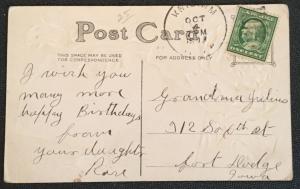 Post Card
THIS SPACE MAY BE USED
FOR CORRESPONDENCE
FOR ADDRESS ONLY
OCT
4
PM
I wish you
many more
happy Birthdays
from
your daughter
Rose
Grandma
912 So 6th st
Fort Dodge
Iowa